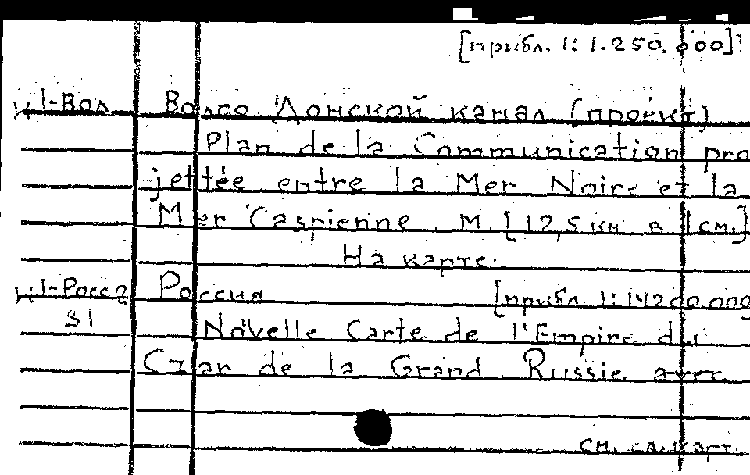 [прибл. 1: 1.250.000]
К 1-Вол Волго Донской канал (проект)
Plan de la Communication pro
jettée entre la Mer Noire et la
Mer Caspienne. М. [12,5 км в 1см.]
На карте:
К 1-Росс Россия [прибл. 1: 14200.000
Novelle Carte de l'Empire du
Czar de la Grand Russie avec
см. сл. карт.